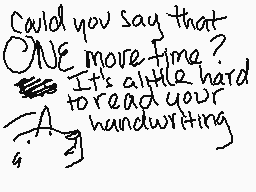 Could you say that
ONE more time?
It's a little hard
to read your
handwriting